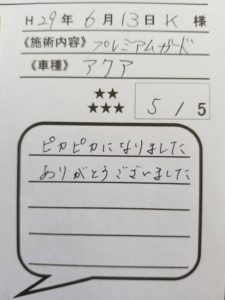 H 29年 6月 13日 K 様
《施術内容》プレミアムガード
《車種》 アクア
★★
★★★
5 / 5
ピカピカになりました
ありがとうございました